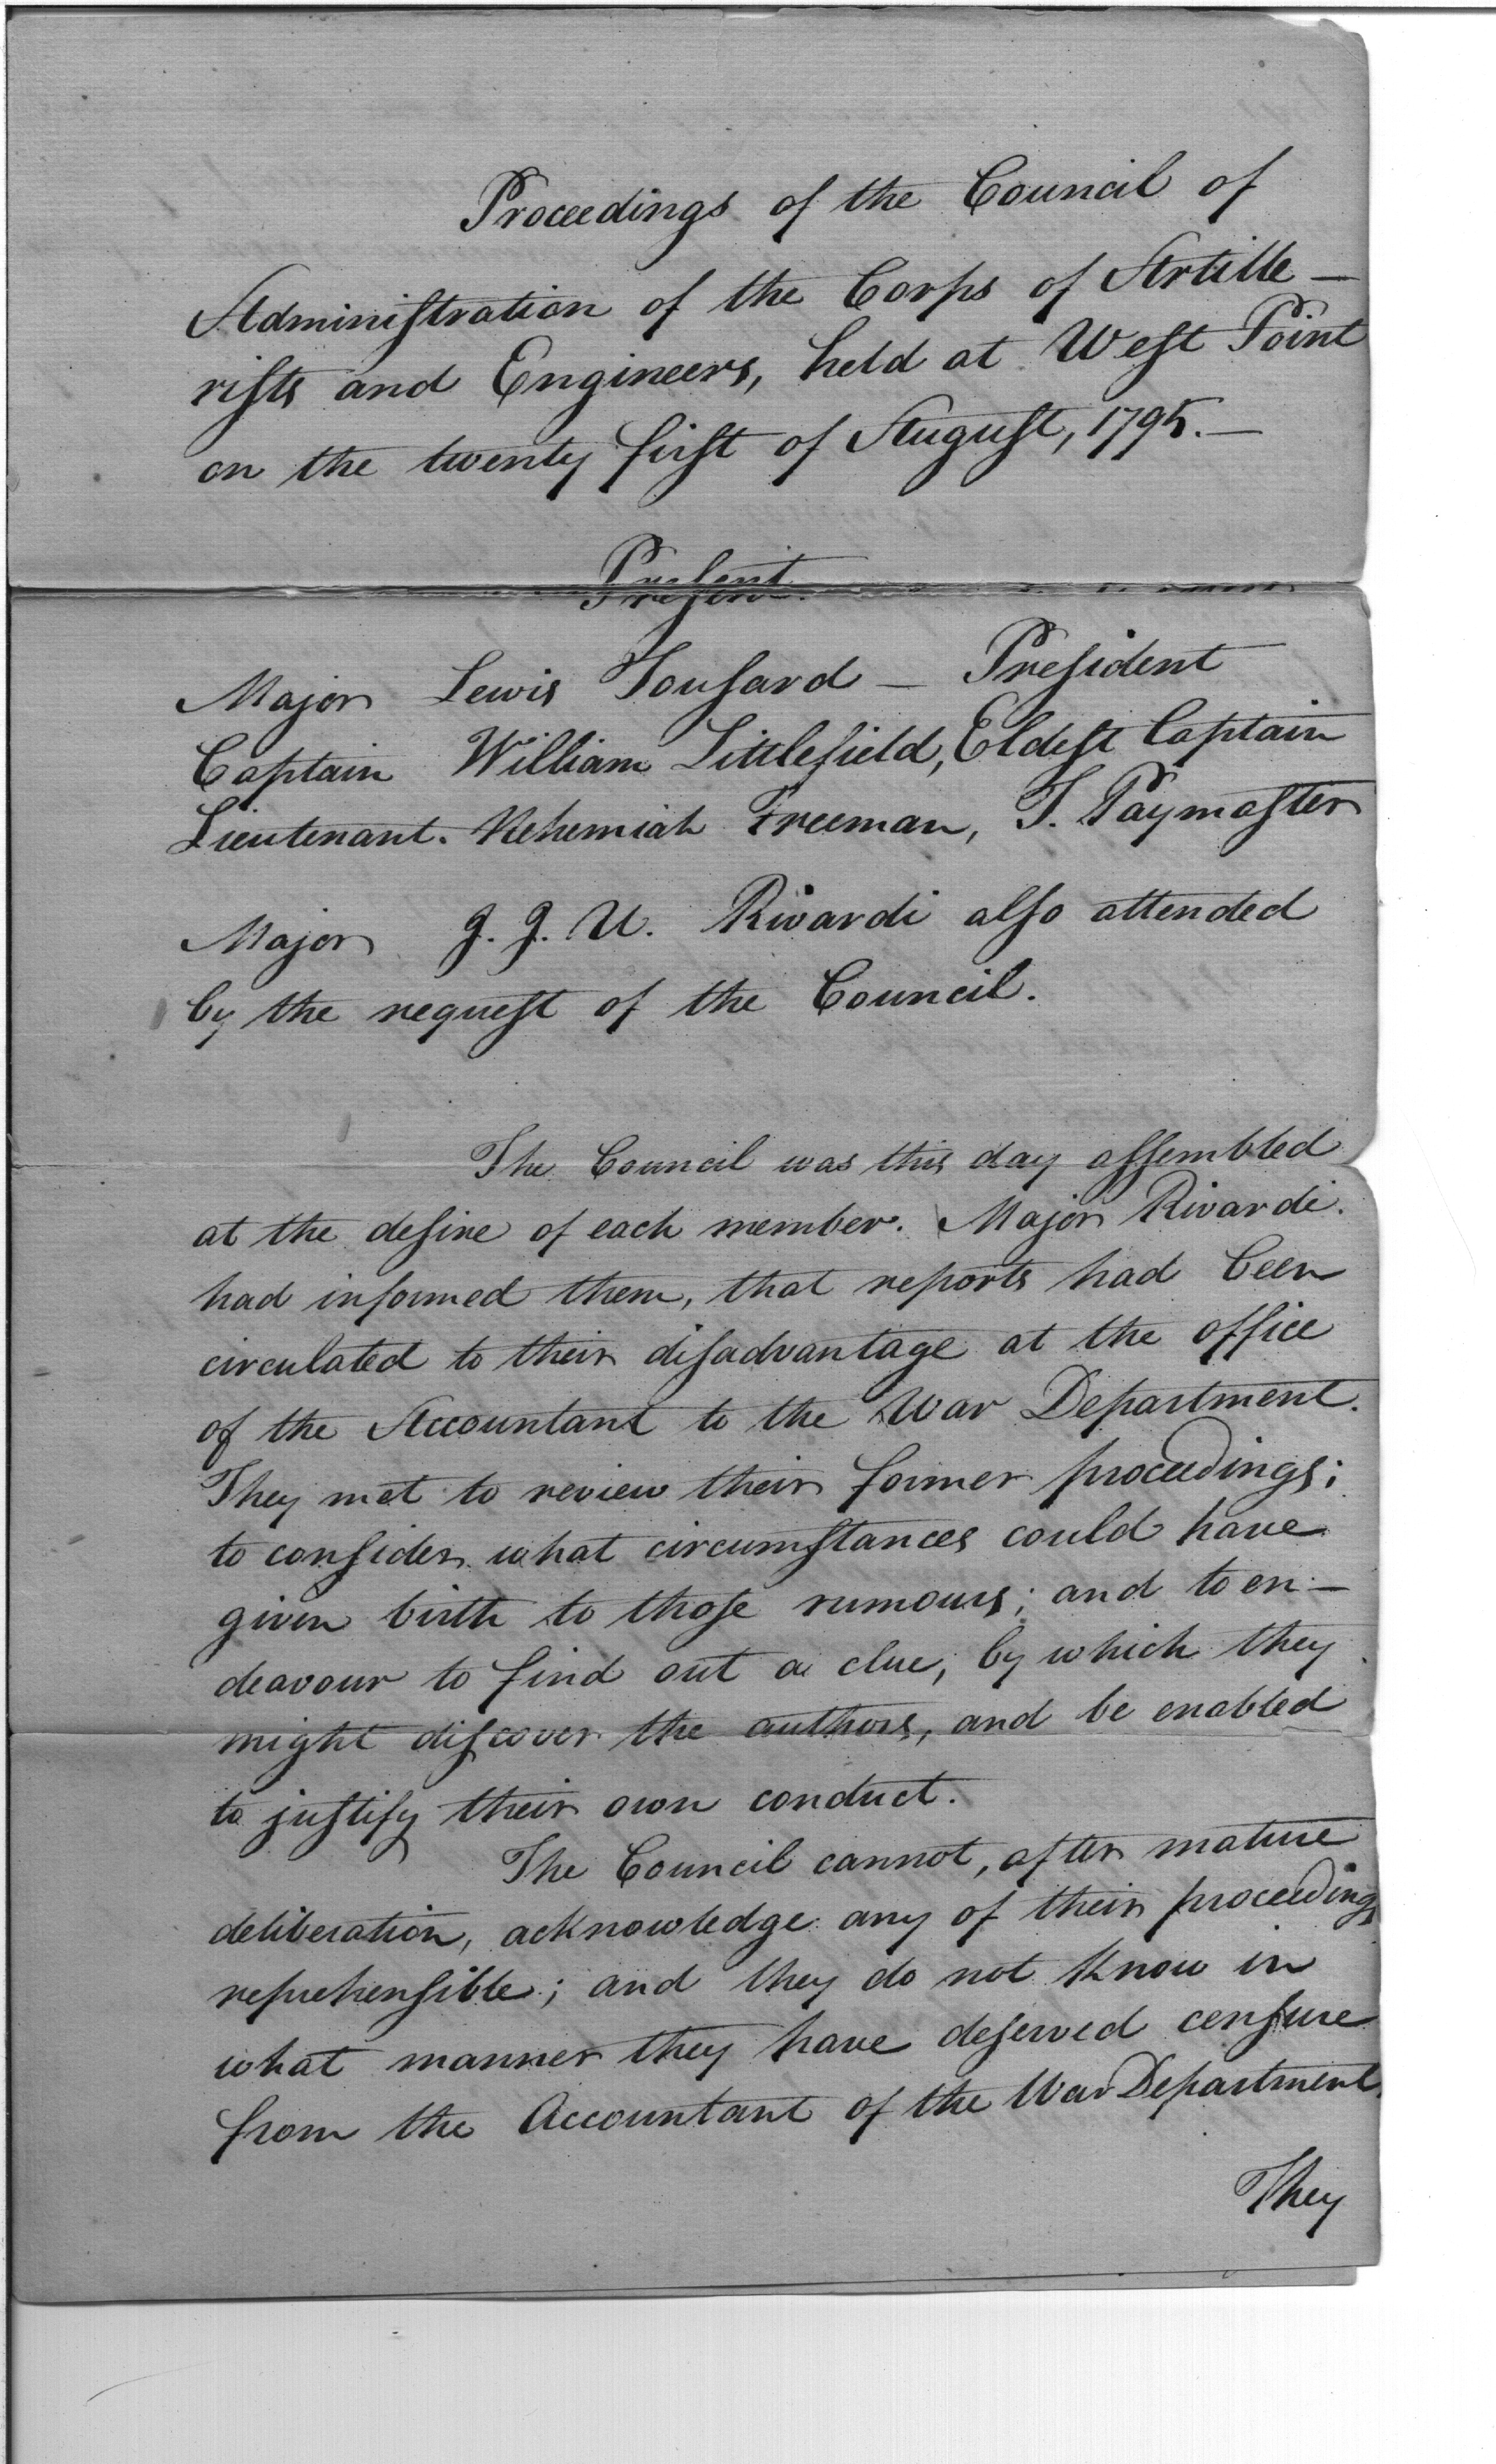 Proceedings of the Council of
Adminiſtration of the Corps of Artille-
riſts and Engineers, held at Weſt Point
on the twenty firſt of Auguſt, 1795.—
Preſent
Major Lewis Touſard — Preſident
Captain William Littlefield, Eldeſt Captain
Lieutenant. Nehemiah Freeman, T. Paymaſter
Major J. J. U. Rivardi alſo attended
by the requeſt of the Council.
The Council was this day aſſembled
at the deſire of each member. Major Rivardi.
had informed them, that reports had been
circulated to their diſadvantage at the office
of the Accountant to the War Department.
They met to review their former proceedings;
to conſider what circumſtances could have
given birth to thoſe rumours; and to en-
deavour to find out a clue, by which they
might diſcover the authors, and be enabled
to juſtify their own conduct.
The Council cannot, after mature
deliberation, acknowledge any of their proceedings
reprehenſible; and they do not know in
what manner they have deſerved cenſure
from the Accountant of the War Department.
They